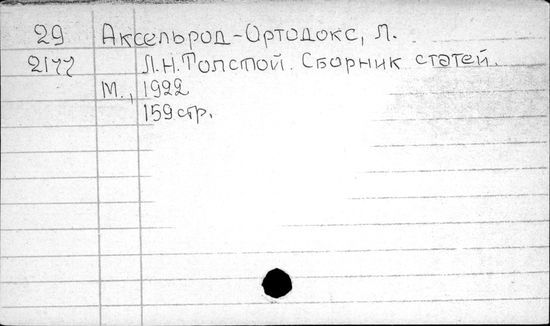 29 Аксельрод-Ортодокс, Л.
2177 Л.Н.Толстой. Сборник статей.
М., 1922
159 стр.